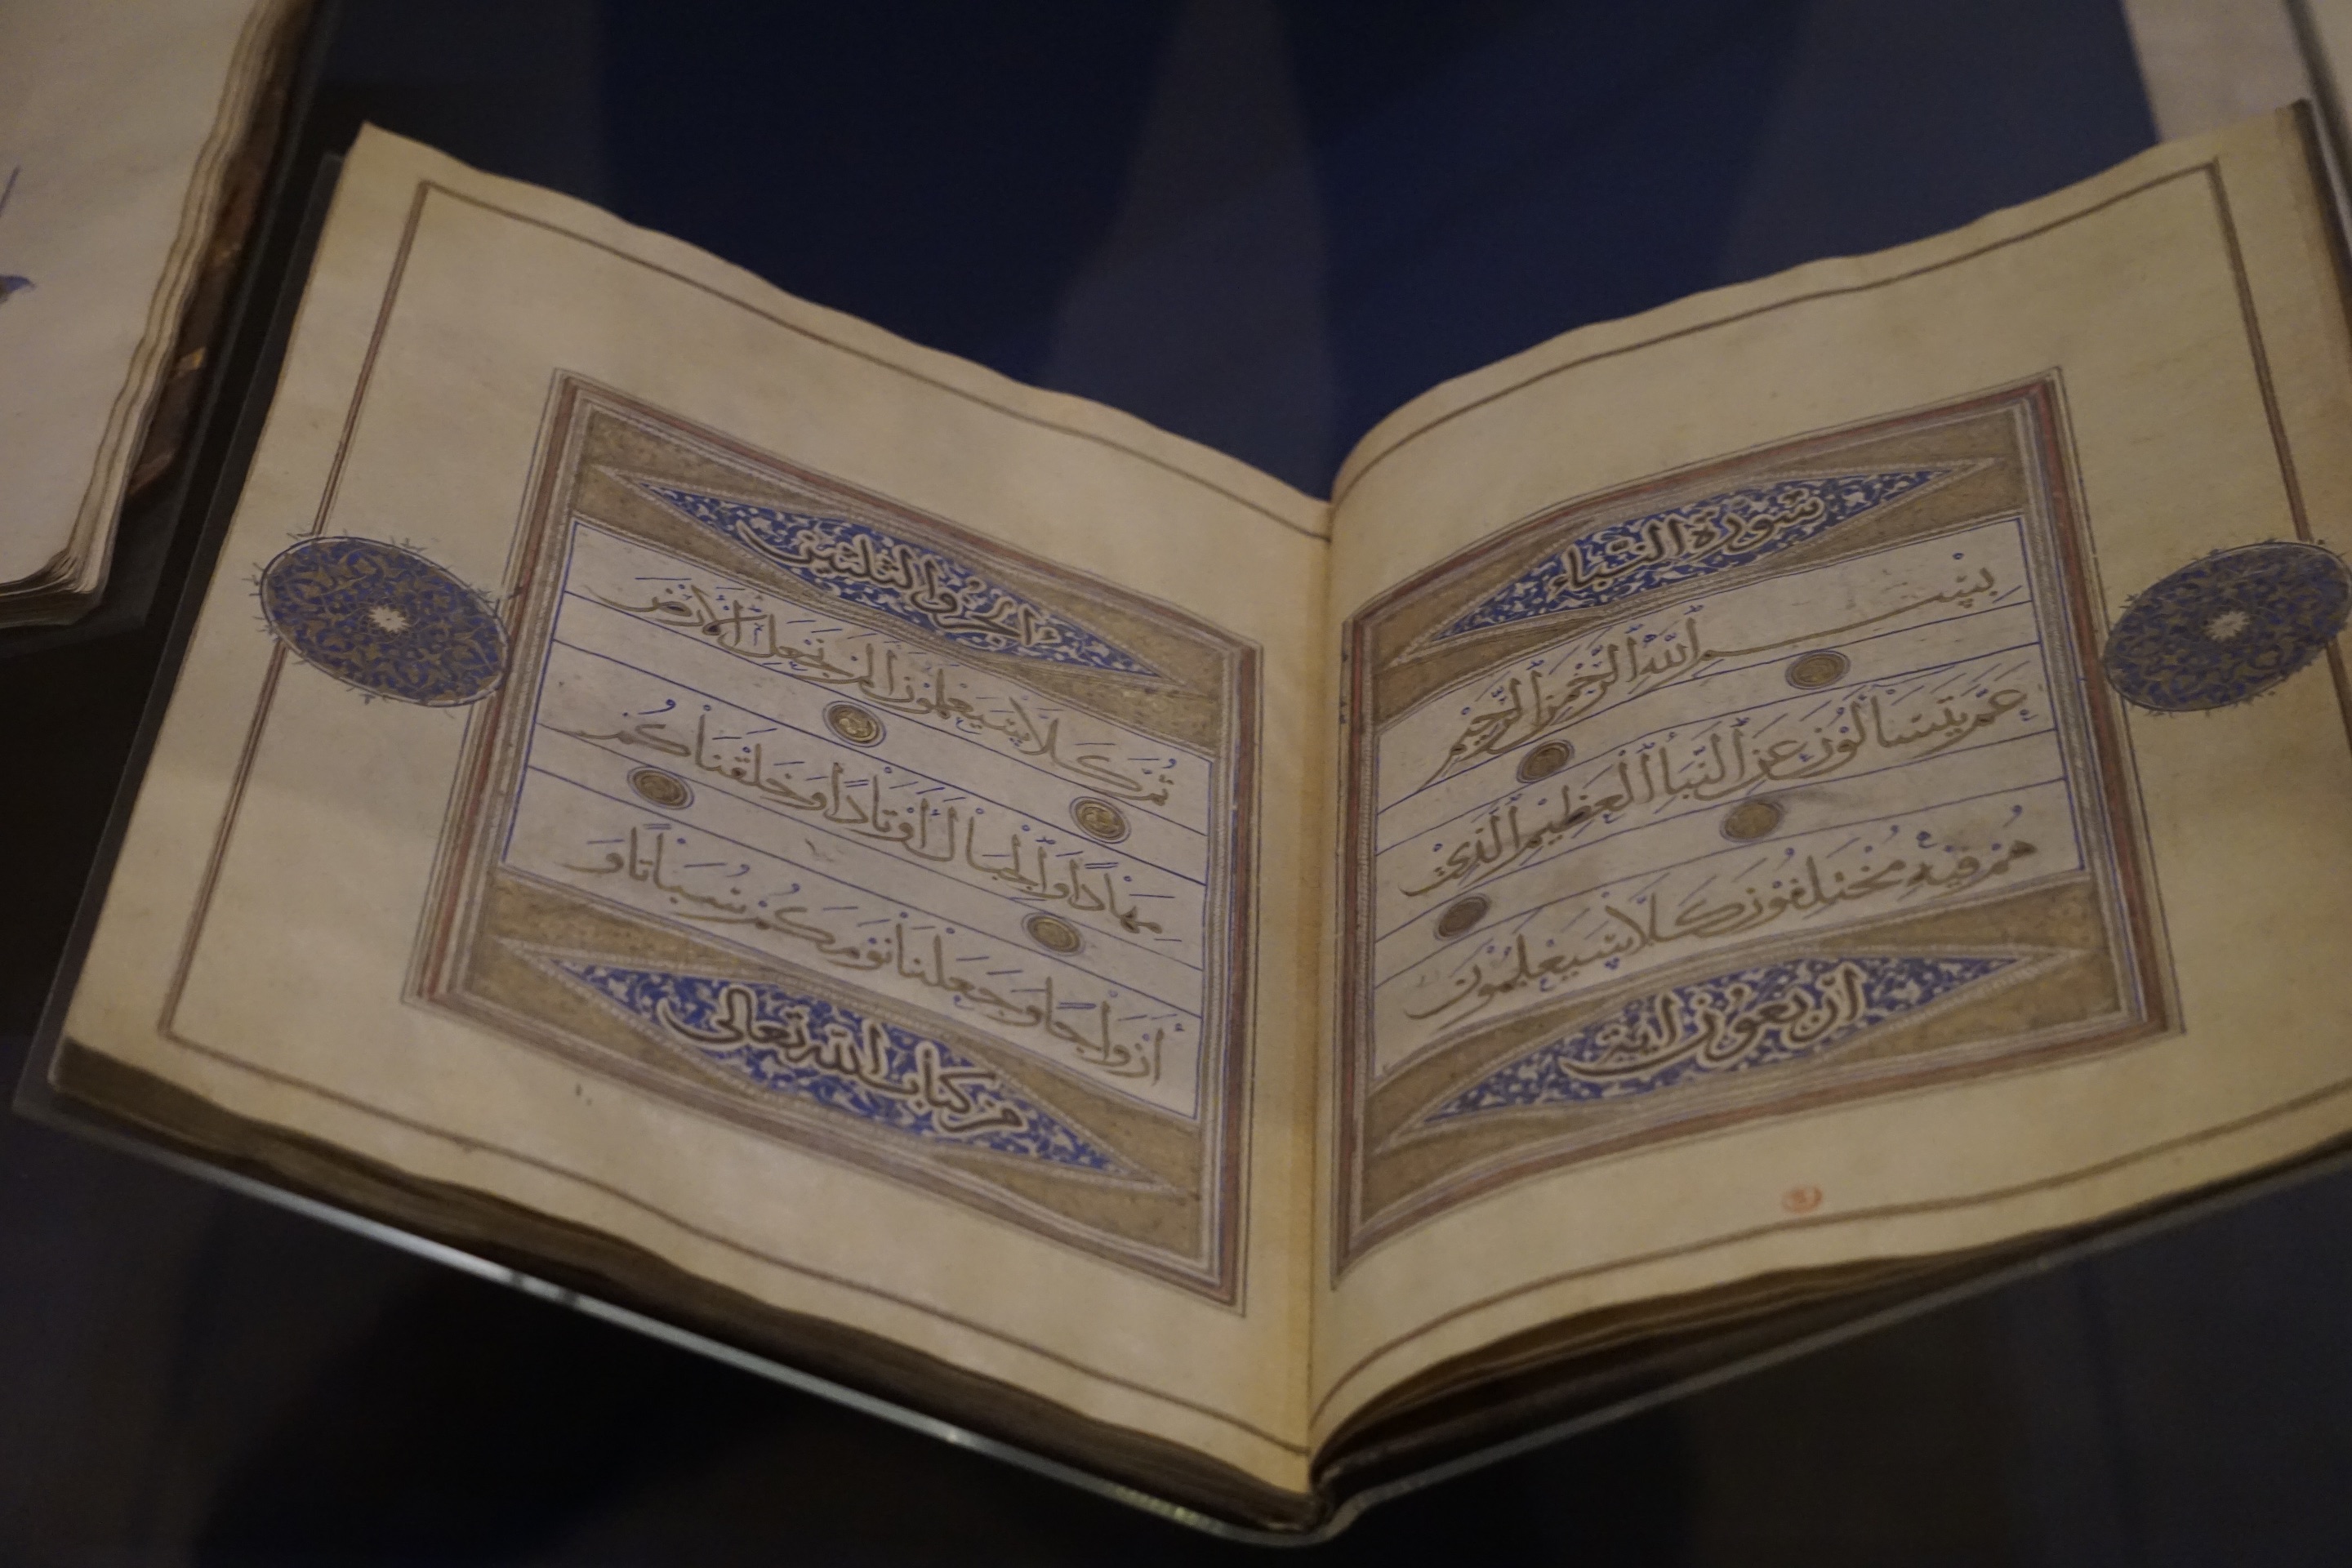 سورة النباء
بِسْمِ اللَّهِ الرَّحْمَنِ الرَّحِيمِ
عَمَّ يَتَسَاءلُونَ عَنِ النَّبَأِ الْعَظِيمِ الَّذِي
هُمْ فِيهِ مُخْتَلِفُونَ كَلَّا سَيَعْلَمُونَ
اربعون اية
الجزؤ الثلثين
ثُمَّ كَلَّا سَيَعْلَمُونَ أَلَمْ نَجْعَلِ الْأَرْضَ
مِهَادًا وَالْجِبَالَ أَوْتَادًا وَخَلَقْنَاكُمْ
أَزْوَاجًا وَجَعَلْنَا نَوْمَكُمْ سُبَاتًا وَ
من كتاب الله تعالى